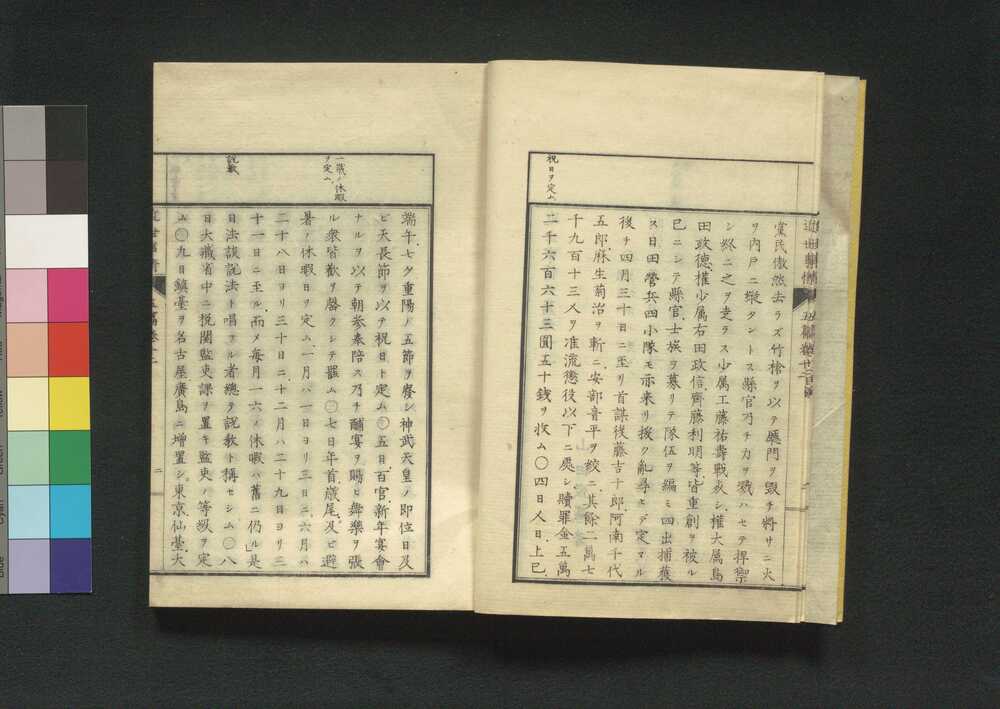 祝日ヲ定ム
黨民傲然去ラズ竹槍ヲ以テ縣門ヲ毀チ將サニ火
ヲ内戸ニ縦タントス縣官乃チ力ヲ戮ハセテ捍禦
シ終ニ之ヲ走ラス少属工藤祐壽戰死シ權大属鳥
田政德權少属右田政信齊藤利明等皆重創ヲ被ル
已ニシテ縣官士族ヲ募リテ隊伍ヲ編ミ四出捕獲
ス日田營兵四小隊モ亦来リ援ク亂尋ヒデ定マル
後チ四月三十日ニ至リ首謀後藤吉十郎阿南千代
五郎麻生菊治ヲ斬ニ安部音平ヲ絞ニ其餘二萬七
千九百十三人ヲ准流懲役以下ニ處シ贖罪金五萬
二千六百六十三圓五十錢ヲ收ム〇四日人日上巳
一歳ノ休暇
ヲ定ム
説教
端午七夕重陽ノ五節ヲ廢シ神武天皇ノ即位日及
ビ天長節ヲ以テ祝日ト定ム〇五日百官新年宴會
ナルヲ以テ朝参奉陪ス乃チ酺宴ヲ賜ヒ舞樂ヲ張
ル衆皆歡ヲ罄クシテ罷ム〇七日年首歳尾及ビ避
暑ノ休暇日ヲ定ム一月ハ一日ヨリ三日ニ六月ハ
二十八日ヨリ三十日ニ十二月ハ二十九日ヨリ三
十一日ニ至ル而メ毎月一六ノ休暇ハ舊ニ仍ル是
日法談説法ト唱フル者總テ説教ト稱セシム〇八
日大藏省中ニ税關監吏課ヲ置キ監吏ノ等級ヲ定
ム〇九日鎮臺ヲ名古屋廣島ニ増置シ東京仙臺大
二